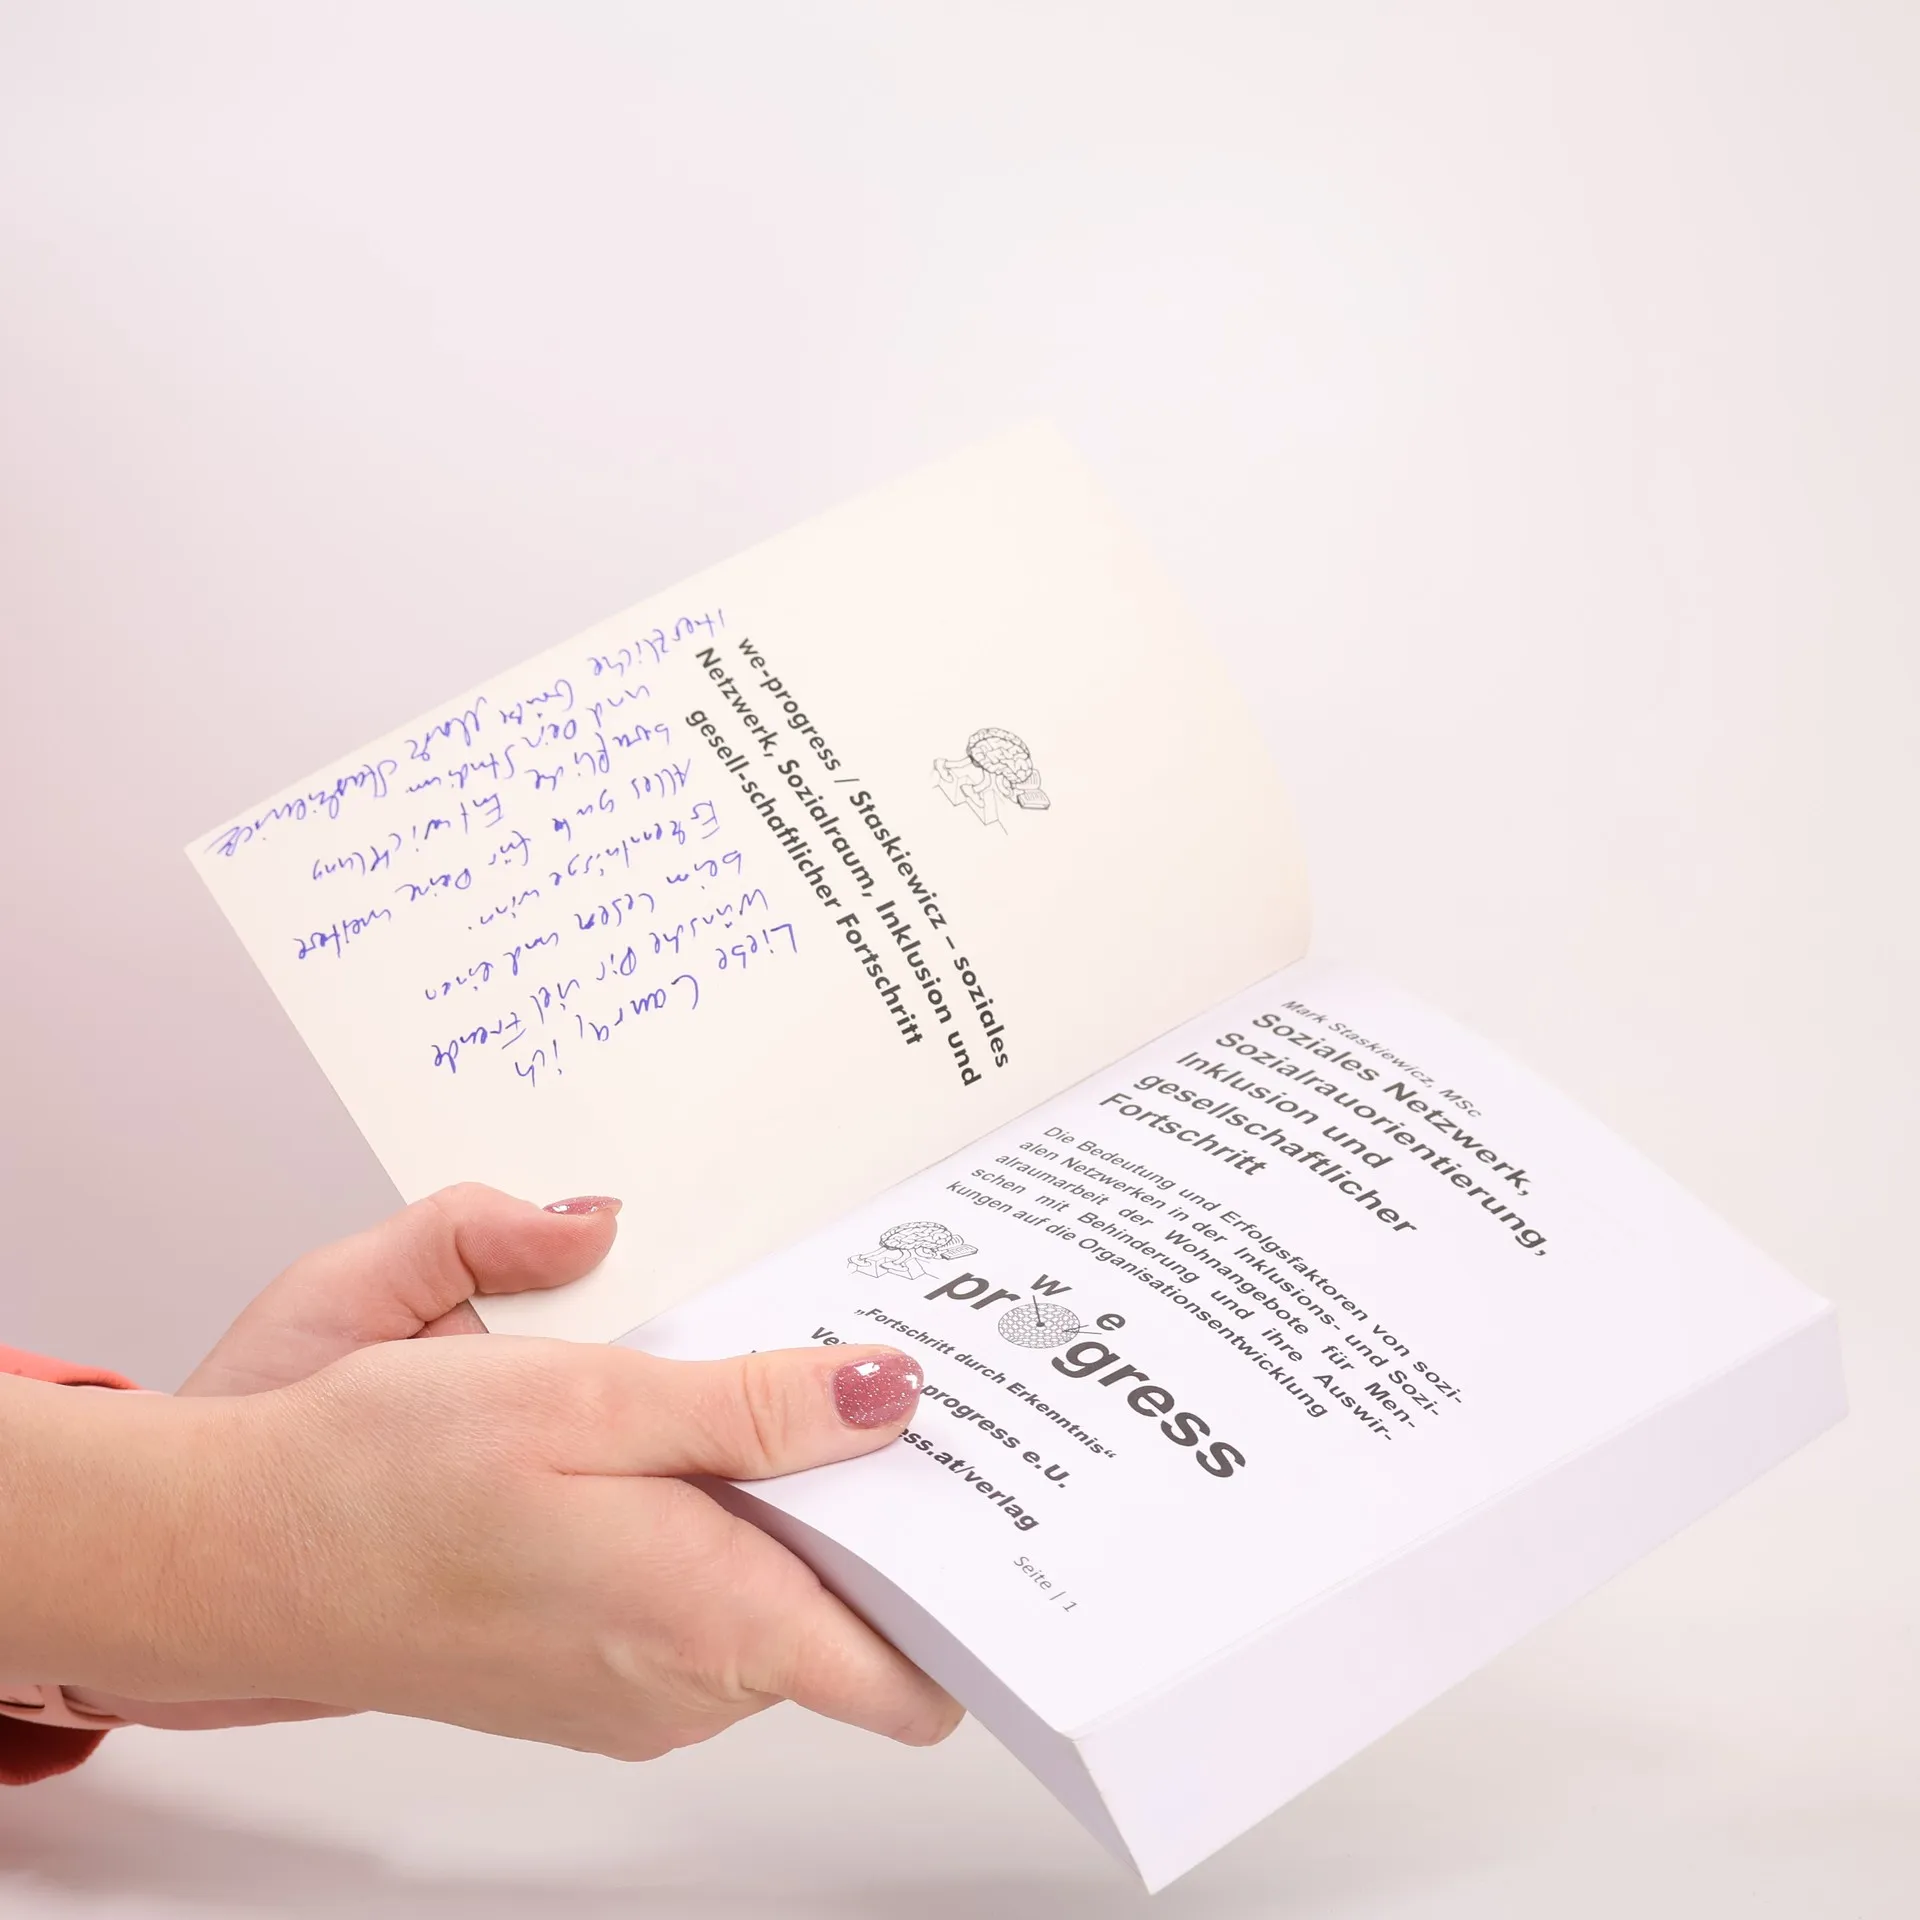 we-progress / Staskiewicz – soziales
Netzwerk, Sozialraum, Inklusion und
gesell-schaftlicher Fortschritt
Liebe Laura, ich
wünsche Dir viel Freude
beim Lesen und einen
Erkenntnissgewinn.
Alles gute für Deine weitere
berufliche Entwicklung
und Dein Studium
Herzliche Grüße Mark Staskiewicz
Mark Staskiewicz, MSc
Soziales Netzwerk,
Sozialrauorientierung,
Inklusion und
gesellschaftlicher
Fortschritt
Die Bedeutung und Erfolgsfaktoren von sozi-
alen Netzwerken in der Inklusions- und Sozi-
alraumarbeit der Wohnangebote für Men-
schen mit Behinderung und ihre Auswir-
kungen auf die Organisationsentwicklung
we
progress
„Fortschritt durch Erkenntnis“
progress e.U.
ess.at/verlag
Seite | 1